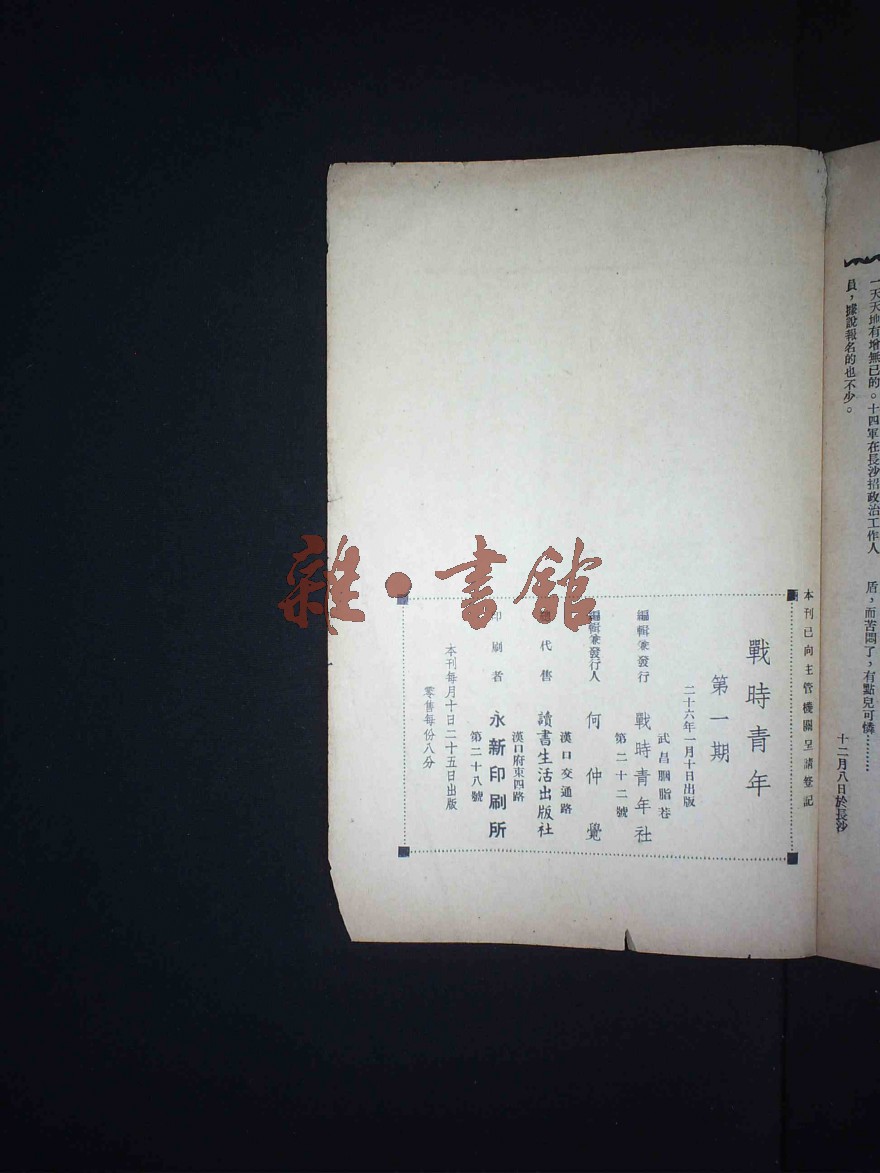 一天天地有增無已的。十四軍在長沙招政治工作人
員，據說報名的也不少。
盾，而苦悶了，有點兒可憐………
十二月八日於長沙
本刊已向主管機關呈請登記
戰時青年
第一期
二十六年一月十日出版
武昌胭脂巷
編輯兼發行 戰時青年社
第二十二號
編輯兼發行人 何仲覺
漢口交通路
代售 讀書生活出版社
漢口府東四路
印刷者 永新印刷所
第二十八號
本刊每月十日二十五日出版
零售每份八分
雜·書館